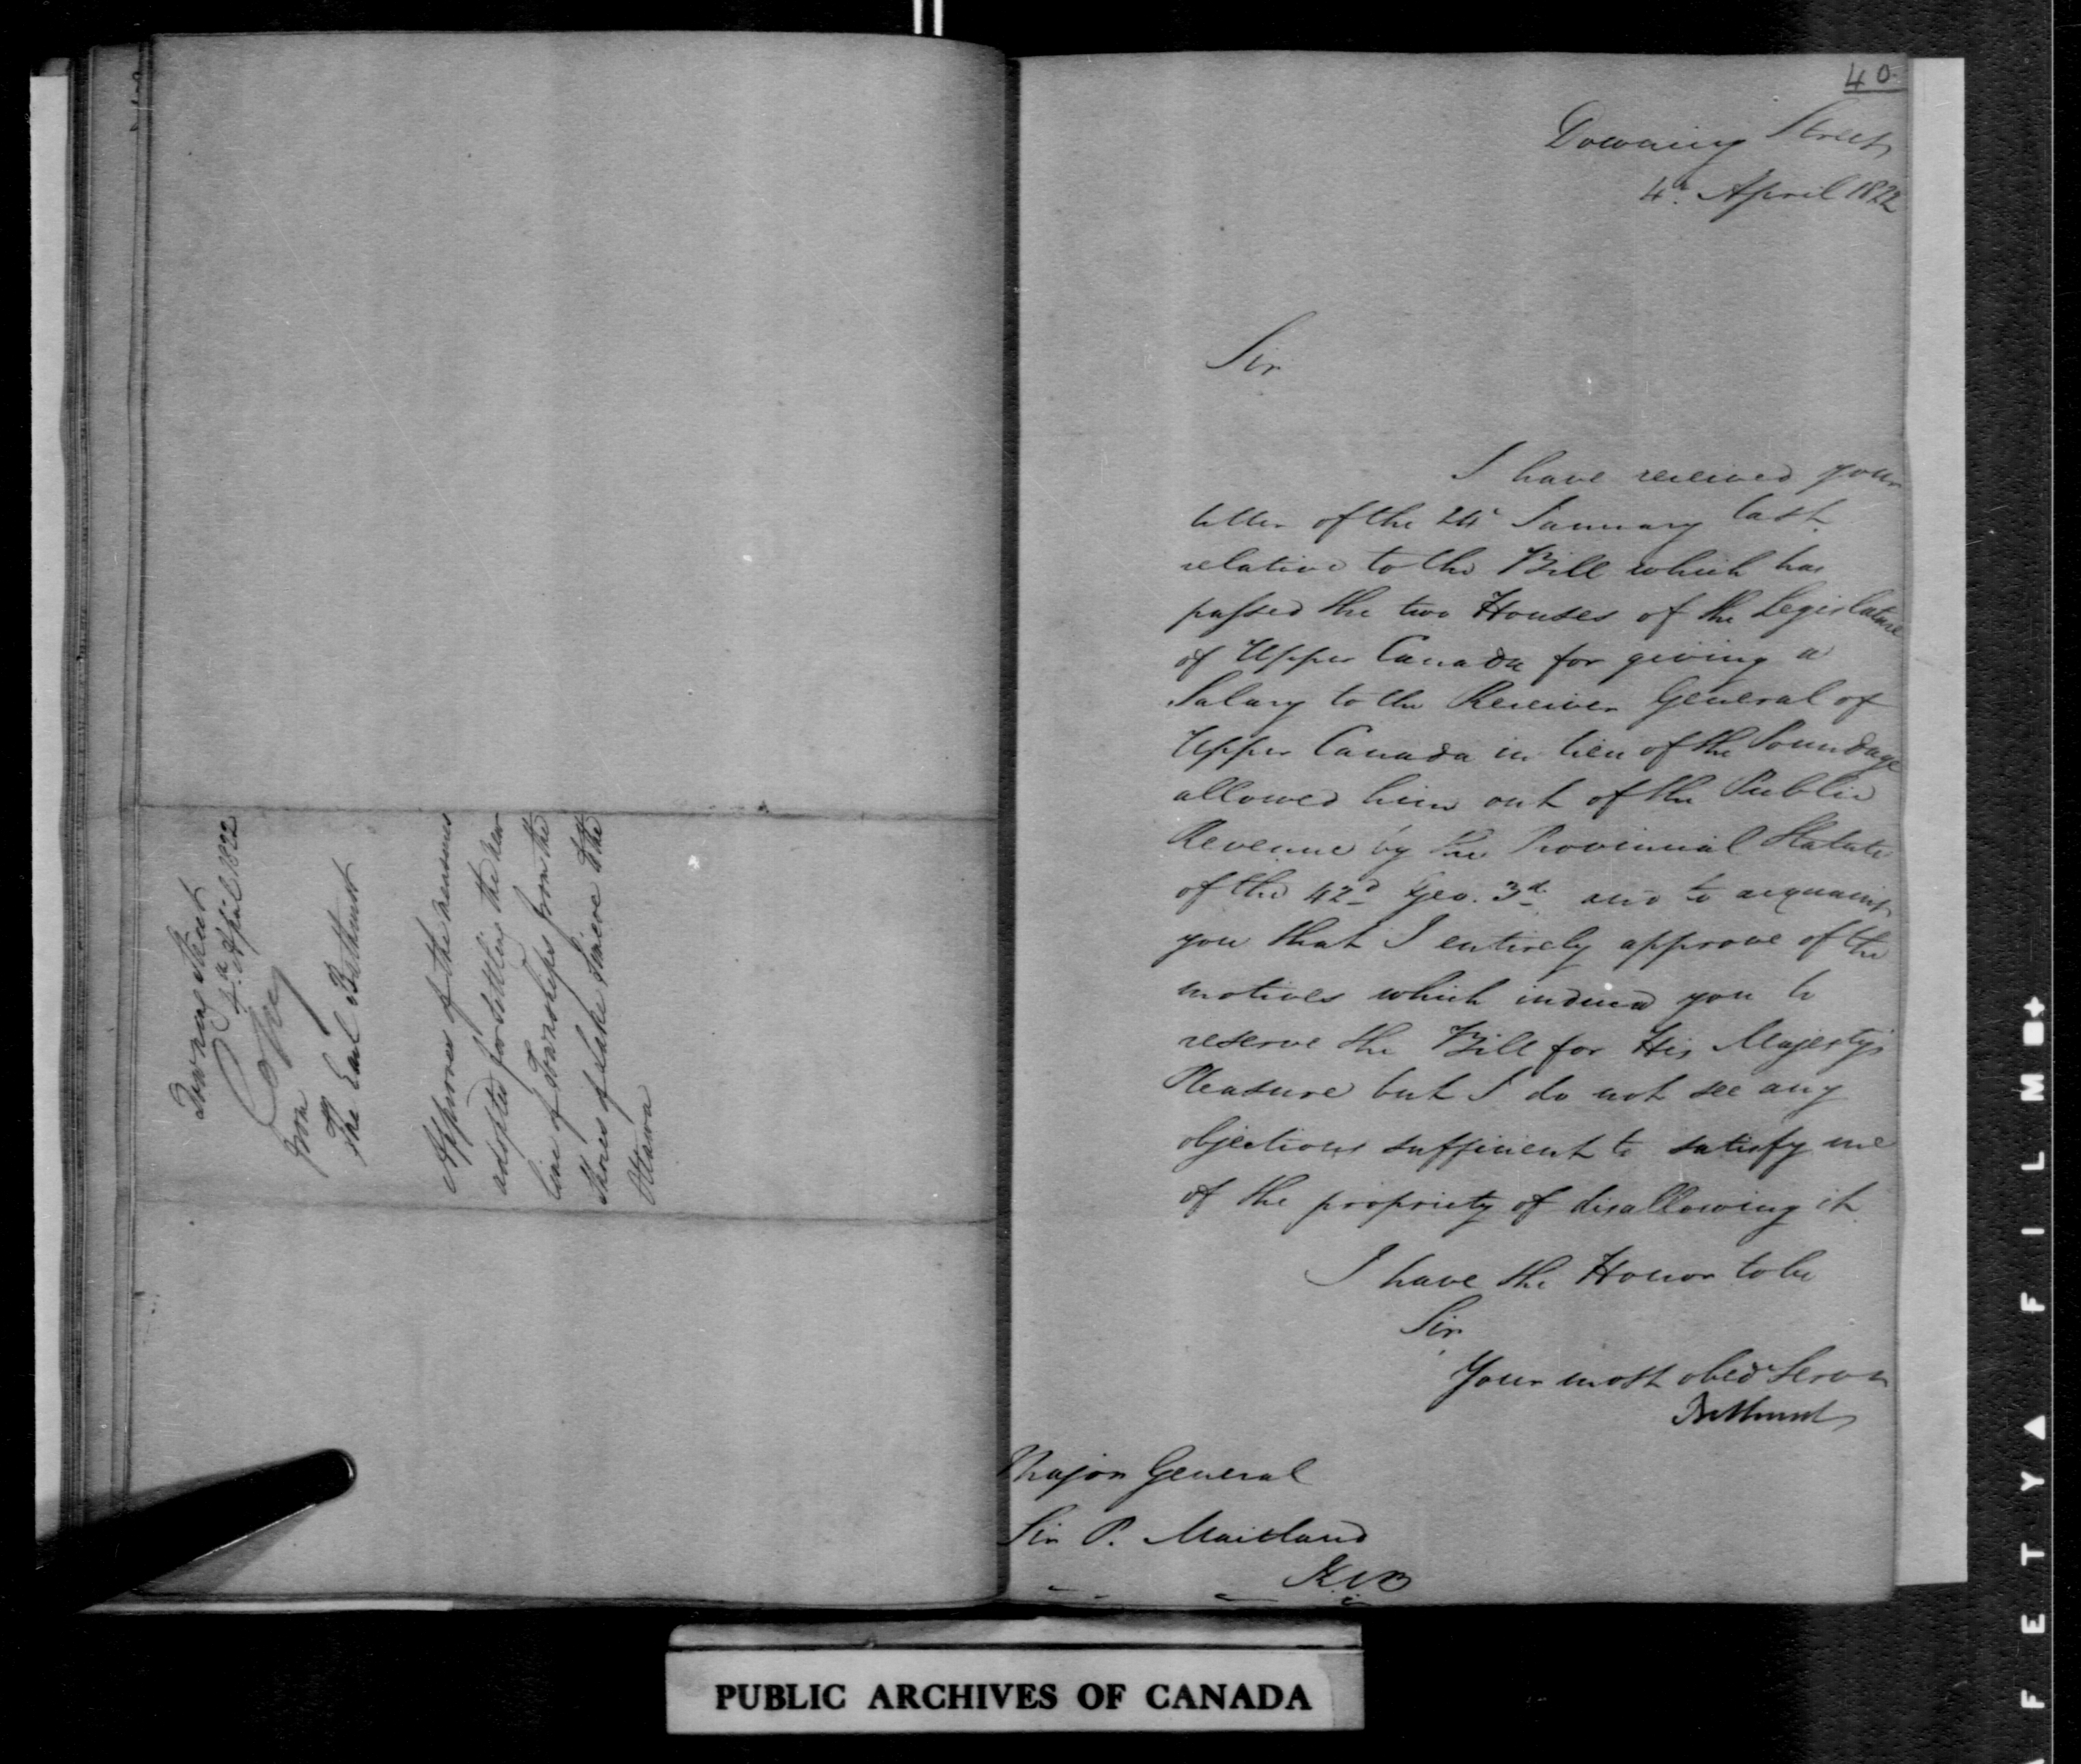 Downing Street
4th April 1822
Copy
from
The Earl Bathurst
Approves of the measures
adopted for settling the new
line of Townships from the
Shores of Lake Simcoe to the
Ottawa
40
Downing Street
4th April 1822
Sir
I have received your
letter of the January last
relative to the Bill which has
passed the two Houses of the Legislature
of Upper Canada for giving a
Salary to the Receiver General of
Upper Canada in lieu of the Poundage
allowed him out of the Public
Revenue by the Provincial Statute
of the 42d Geo. 3d and to acquaint
you that I entirely approve of the
motives which induced you to
reserve the Bill for His Majesty's
Pleasure but I do not see any
objections sufficient to satisfy me
of the propriety of disallowing it
I have the Honor to be
Sir
Your most obedt Servt
Bathurst
Major General
Sir P. Maitland
KCB
PUBLIC ARCHIVES OF CANADA
AFETY▲FILM